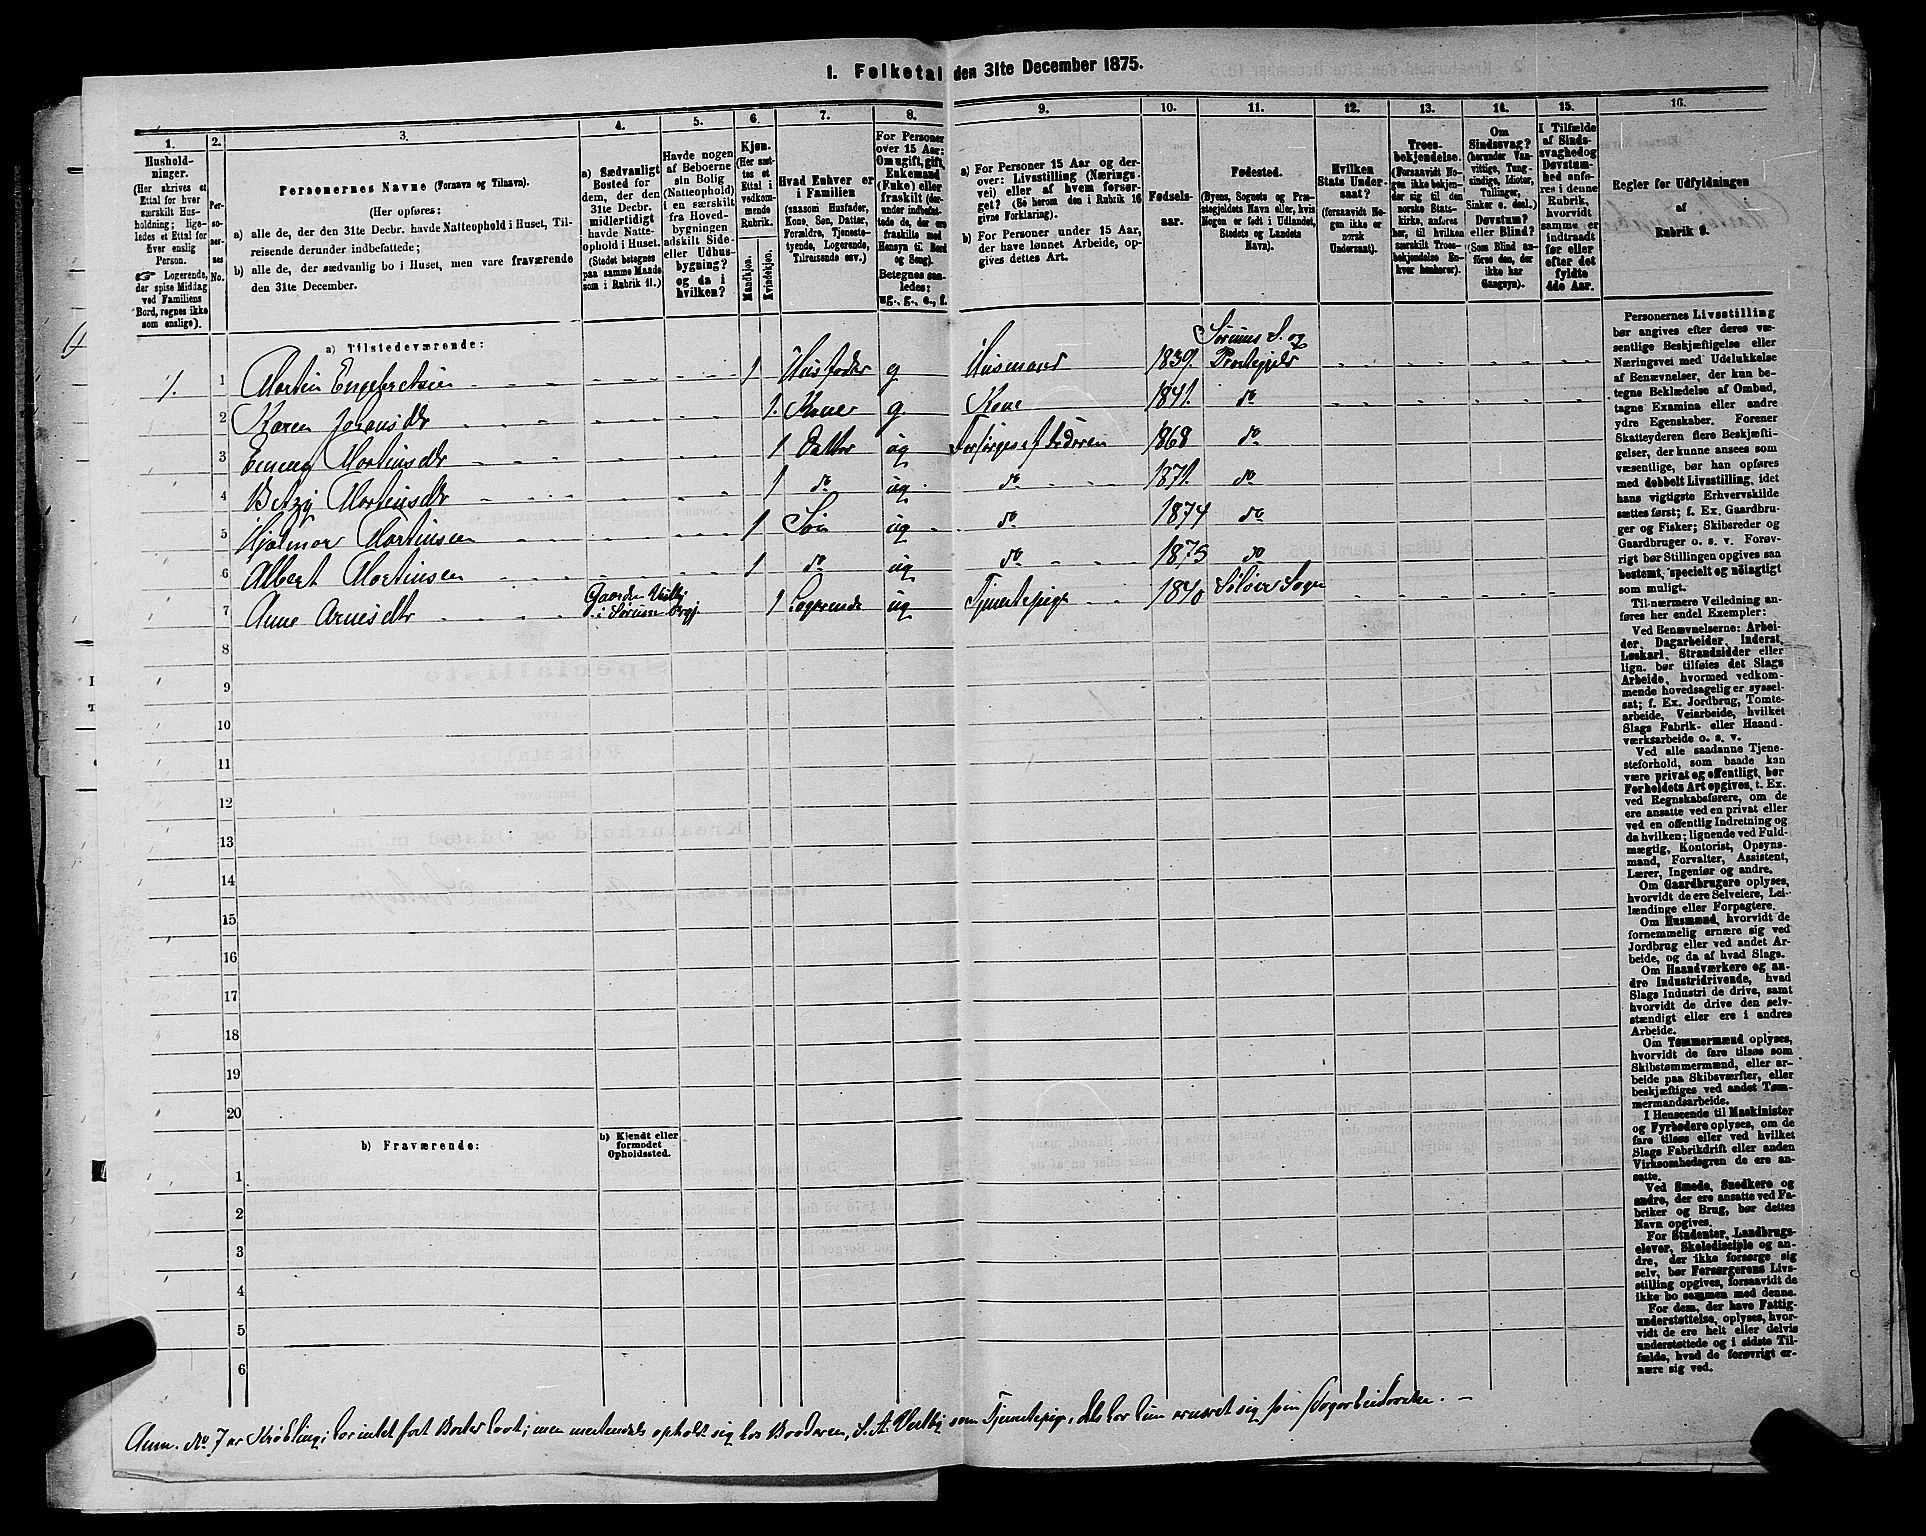 1. Folketal den 31te December 1875.
1.
Husholdninger.
(Her skrives et
Ettal for hver
særskilt Husholdning; ligeledes et Ettal for
Ever enslig
Person.
Logerende,
der spise Middag
ved Familiens
Bord, regnes ikke
som enslige).
2.
Personernes No.
3.
Personernes Navne (Fornavn og Tilnavn).
(Her opføres:
a) alle de, der den 31te Decbr. havde Natteophold i Huset, Tilreisende derunder indbefattede;
b) alle de, der sædvanlig bo i Huset, men vare fraværende
den 31te December.
4.
a) Sædvanligt
Bosted for
dem, der den
31te Decbr.
midlertidigt
havde Natteophold i Huset.
(Stedet betegnes
paa samme Maade
som i Rubrik 11.)
5.
Havde nogen
af Beboerne
sin Bolig
(Natteophold)
i en særskilt
fra Hovedbygningen
adskilt Side-
eller Udhusbygning?
og da i
hvilken?
6.
Kjøn.
(Her sættes et
Ettal i
vedkommende
Rubrik.
Mandkjøn.
Kvindekjøn.
7.
Hvad Enhver er
i Familien
(saasom Husfader,
Kone, Søn, Datter,
Forældre, Tjenestetyende, Logerende,
Tilreisende osv.)
8.
For Personer
over 15 Aar:
Om ugift, gift,
Enkemand
(Enke) eller
fraskilt (derunder indbefattede de, der ere
fraskilte med
Hensyn til Bord
og Seng).
Betegnes saaledes:
ug., g., e., f.
9.
a) For Personer 15 Aar og derover: Livsstilling (Næringsvei) eller af hvem forsørget? (Se herom den i Rubrik 16
givne Forklaring).
b) For Personer under 15 Aar,
der have lønnet Arbeide, opgives dettes Art.
10.
Fødselsaar.
11.
Fødested.
(Byens, Sognets og Præstegjeldets Navn eller, hvis
Nogen er født i Udlandet,
Stedets og Landets
Navn).
12.
Hvilken
Stats Undersaat?
(forsaavidt Nogen ikke er
norsk
Undersaat).
13.
Troesbekjendelse.
(Forsaavidt Nogen ikke bekjender sig til den
norske Statskirke, anføres
her, til hvilken
særskilt Troesbekjendelse Enhver henhører).
14.
Om
Sindssvag?
(herunder Vanvittige, Tungsindige, Idioter,
Tullinger,
Sinker o. desl.)
Døvstum?
eller Blind?
(Som Blind anføres den, der
ikke har
Gangsyn).
15.
I Tilfælde
af Sindssvaghed og
Døvstumhed anføres i denne
Rubrik,
hvorvidt
samme er
indtraadt
før eller
efter det
fyldte
4de Aar.
16.
Regler for Udfyldningen
af
Rubrik 9.
a) Tilstedeværende:
Sørums S. og
1. 1 Martin Engebretsen 1 Husfader g Husmand 1839. Præstegjeld
2 Karen Johansdr 1. Kone g. Kone 1841. do
3 Emma Martinsdr 1 Datter ug Forsørges af Faderen 1868 do
4 Betzy Martinsdr 1 do ug. do 1871. do
5 Hjalmar Martinsen 1 Søn ug do 1874 do
6 Albert Martinsen 1 do ug do 1875 do
7 Anne Arnesdtr 1 Logerende ug Tjenestepige 1840 Sogn
8
9
10
11
12
13
14
15
16
17
18
19
20
b) Fraværende:
b) Kjendt eller
formodet
Opholdssted.
1
2
3
4
5
6
Personernes Livsstilling
bør angives efter deres væsentlige Beskjæftigelse eller
Næringsvei med Udelukkelse
af Benævnelser, der kun betegne Beklædelse af Ombud,
tagne Examina eller andre
ydre Egenskaber. Forener
Skatteyderen flere Beskjæftigelser, der kunne ansees som
væsentlige, bør han opføres
med dobbelt Livsstilling, idet
hans vigtigste Erhvervskilde
sættes først; f. Ex. Gaardbruger og Fisker; Skibsreder og
Gaardbruger o. s. v. Forøvrigt bør Stillingen opgives saa
bestemt, specielt og nøiagtigt
som muligt.
Til nærmere Veiledning anføres her endel Exempler:
Ved Benævnelserne: Arbeider, Dagarbeider, Inderst,
Løskarl, Strandsidder eller
lign. bør tilføies det Slags
Arbeide, hvormed vedkommende hovedsagelig er sysselsat; f. Ex. Jordbrug, Tomtearbeide, Veiarbeide, hvilket
Slags Fabrik- eller Haandværksarbeide o. s. v.
Ved alle saadanne Tjenesteforhold, som baade kan
være privat og offentligt, bør
Forholdets Art opgives, t. Ex.
ved Regnskabsførere, om de
ere ansatte ved en privat eller
ved en offentlig Indretning og
da hvilken; lignende ved Fuldmægtig, Kontorist, Opsynsmand, Forvalter, Assistent,
Lærer, Ingeniør og andre.
Om Gaardbrugere oplyses,
hvorvidt de ere Selveiere, Leilændinge eller Forpagtere.
Om Husmænd, hvorvidt de
fornemmelig ernære sig ved
Jordbrug eller ved andet Arbeide, og da af hvad Slags.
Om Haandværkere og andre Industridrivende, hvad
Slags Industri de drive, samt
hvorvidt de drive den selvstændigt eller ere i andres
Arbeide.
Om Tømmermænd oplyses,
hvorvidt de fare tilsøs som
Skibstømmermænd, eller arbeide paa Skibsværfter, eller
beskjæftiges ved andet Tømmermandsarbeide.
I Henseende til Maskinister
og Fyrbødere oplyses, om de
fare tilsøs eller ved hvilket
Slags Fabrikdrift eller anden
Virksomhedsgren de ere ansatte.
Ved Smede, Snedkere og
andre, der ere ansatte ved Fabriker og Brug, bør dettes
Navn opgives.
For Studenter, Landbrugselever, Skoledisciple og andre, der ikke forsørge sig
selv, bør Forsørgerens Livsstilling opgives, forsaavidt de
ikke bo sammen med denne.
For dem, der have Fattigunderstøttelse, oplyses, hvorvidt de ere helt eller delvis
understøttede og i sidste Tilfælde, hvad de forøvrigt ernære sig ved.
Anm. No 7 er intet fast men opholdt sig hos Broderen, som Tjenestepige, dels har hun ernæret sig som